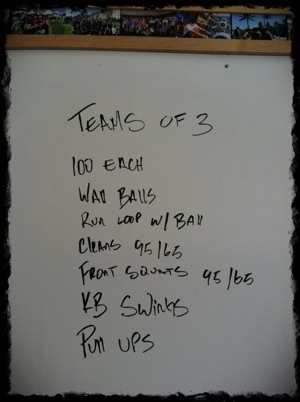 TEAMS OF 3
100 EACH
WALL BALLS
RUN LOOP W/ BALL
CLEANS 95/65
FRONT SQUATS 95/65
KB SWINGS
PULL UPS